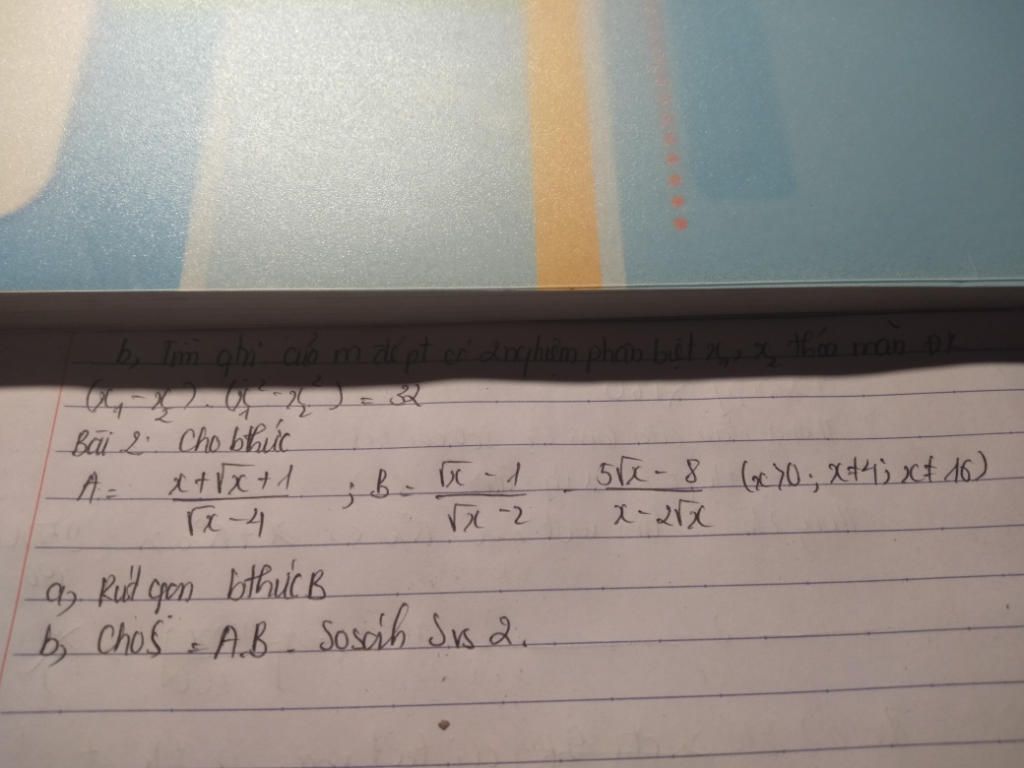 b, Tìm gtrị của m để pt có 2 nghiệm phân biệt x₁, x₂ thỏa mãn đk
(x₁ - x₂) . (x₁² - x₂²) = 32
Bài 2: Cho bthức
A = (x+√x+1)/(√x-4) ; B = (√x-1)/(√x-2) - (5√x-8)/(x-2√x) (x>0; x≠4; x≠16)
a, Rút gọn bthức B
b, Cho S = A.B. So sánh S vs 2.